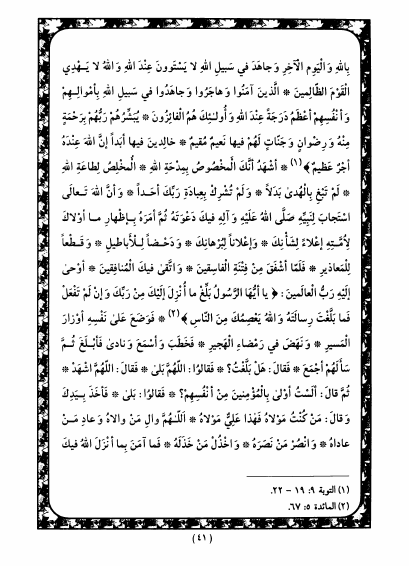 بِاللهِ وَالْيَومِ الْآخِرِ وَجاهَدَ في سَبيلِ اللهِ لا يَسْتَوونَ عِنْدَ اللهِ وَاللهُ لا يَـهْدِي
الْقَوْمَ الظّالِمينَ * الَّذينَ آمَنُوا وَهاجَرُوا وَجاهَدُوا في سَبيلِ اللهِ بِأَموالِـهِمْ
وَأَنْفُسِهِمْ أَعْظَمُ دَرَجَةً عِنْدَ اللهِ وَأُولـئِكَ هُمُ الْفائِزُونَ * يُبَشِّرُهُمْ رَبُّهُمْ بِرَحْمَةٍ
مِنْهُ وَرِضْوانٍ وَجَنّاتٍ لَهُمْ فيها نَعيمٌ مُقيمٌ * خالِدينَ فيها أَبَداً إِنَّ اللهَ عِنْدَهُ
أَجْرٌ عَظيمٌ﴾(١) * أَشْهَدُ أَنَّكَ الْمَخْصُوصُ بِمِدْحَةِ اللهِ * الْمُخْلِصُ لِطاعَةِ اللهِ
* لَمْ تَبْغِ بِالْهُدىٰ بَدَلاً * وَلَمْ تُشْرِكْ بِعِبادَةِ رَبِّكَ أَحَـداً * وَأَنَّ اللهَ تَعـالَى
اسْتَجابَ لِنَبِيِّهِ صَلَّى اللهُ عَلَيْهِ وَآلِهِ فيكَ دَعْوَتَهُ ثُمَّ أَمَرَهُ بِـإِظْهارِ مـا أَوْلاكَ
لِأُمَّـتِهِ إِعْلاءً لِشَأْنِـكَ * وَإِعْلاناً لِبُرْهانِكَ * وَدَحْـضاً لِـلْأَباطيلِ * وَقَـطْعاً
لِلْمَعاذيرِ * فَلَمّا أَشْفَقَ مِنْ فِتْنَةِ الْفاسِقينَ * وَاتَّقىٰ فيكَ الْمُنافِقينَ * أَوْحىٰ
إِلَيْهِ رَبُّ الْعالَمينَ: ﴿ يا أَيُّهَا الرَّسُولُ بَلِّغْ ما أُنْزِلَ إِلَيْكَ مِنْ رَبِّكَ وَإِنْ لَمْ تَفْعَلْ
فَما بَلَّغْتَ رِسالَتَهُ وَاللهُ يَعْصِمُكَ مِنَ النّاسِ ﴾(٢) * فَوَضَعَ عَلىٰ نَفْسِهِ أَوْزارَ
الْمَسيرِ * وَنَهَضَ في رَمْضاءِ الْهَجيرِ * فَخَطَبَ وَأَسْمَعَ وَنادىٰ فَأَبْـلَغَ * ثُـمَّ
سَأَلَهُمْ أَجْمَعَ * فَقالَ: هَلْ بَلَّغْتُ؟ * فَقالُوا: اللّهُمَّ بَلىٰ * فَقالَ: اللّهُمَّ اشْهَدْ *
ثُمَّ قالَ: أَلَسْتُ أَوْلىٰ بِالْمُؤْمِنينَ مِنْ أَنْفُسِهِمْ؟ * فَقالُوا: بَلىٰ * فَأَخَذَ بِـيَدِكَ
وَقالَ: مَنْ كُنْتُ مَوْلاهُ فَهٰذا عَلِيٌّ مَوْلاهُ * اَللّـهُمَّ والِ مَنْ والاهُ وَعادِ مَـنْ
عاداهُ * وَانْصُرْ مَنْ نَصَرَهُ * وَاخْذُلْ مَنْ خَذَلَهُ * فَما آمَنَ بِما أَنْزَلَ اللهُ فيكَ
(١) التوبة ٩: ١٩ - ٢٢.
(٢) المائدة ٥: ٦٧.
(٤١)